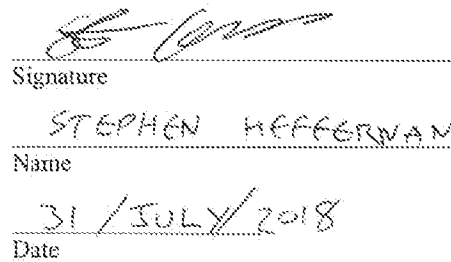 Signature
STEPHEN HEFFERNAN
Name
31/JULY/2018
Date